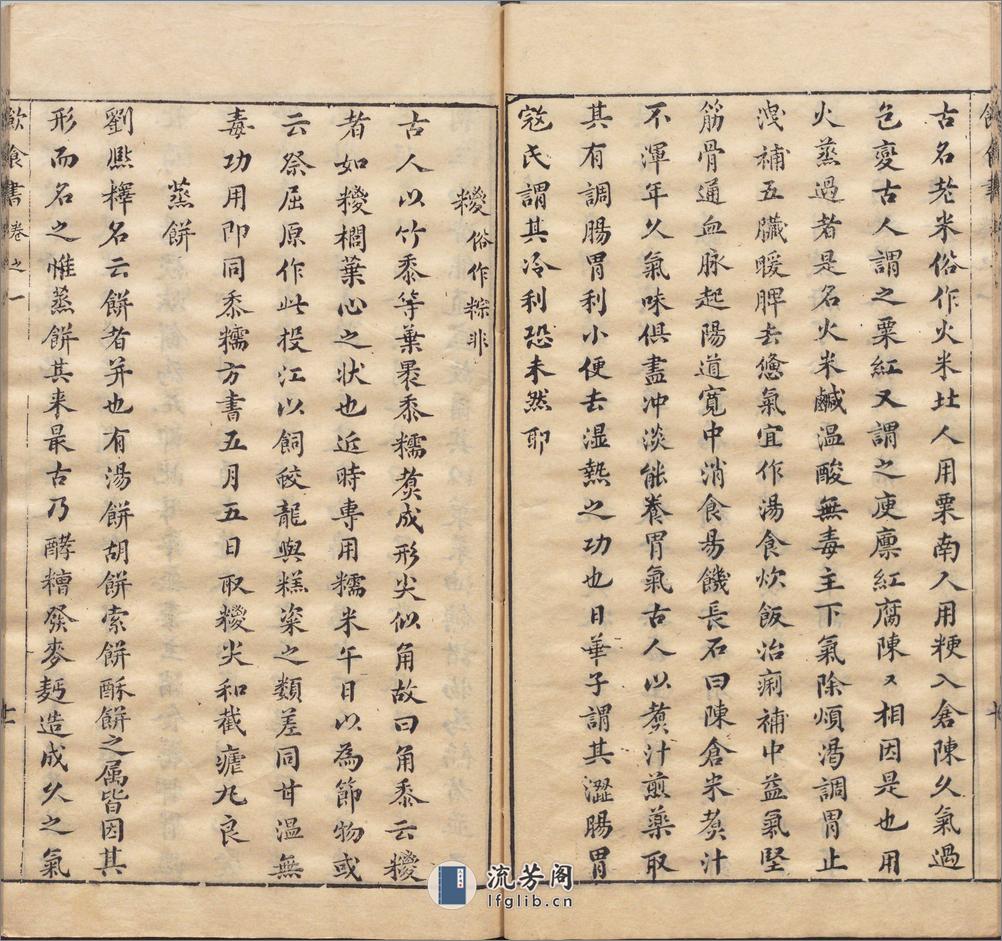 古名老米俗作火米北人用粟南人用粳入倉陳久氣過
色變古人謂之粟紅又謂之庾廪紅腐陳々相因是也用
火蒸過者是名火米鹹溫酸無毒主下氣除煩渴調胃止
洩補五臟暖脾去憊氣宜作湯食炊飯治痢補中益氣堅
筋骨通血脉起陽道寬中消食易饑長石曰陳倉米煑汁
不渾年久氣味俱盡冲淡能養胃氣古人以煑汁煎藥取
其有調腸胃利小便去湿熱之功也日華子謂其澀腸胃
寇氏謂其冷利恐未然耶
糉俗作粽非
古人以竹黍等葉褁黍糯煑成形尖似角故曰角黍云糉
者如糉櫚葉心之状也近時専用糯米午日以為節物或
云祭屈原作此投江以飼蛟龍與糕粢之類差同甘溫無
毒功用即同黍糯方書五月五日取糉尖和截瘧丸良
蒸餅
劉熈釋名云餅者并也有湯餅胡餅索餅酥餅之属皆因其
形而名之惟蒸餅其来最古乃酵糟發麥麪造成久之氣
飲食書 卷之一
流芳阁
lfglib.cn